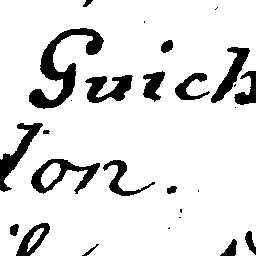 Guich
lon.